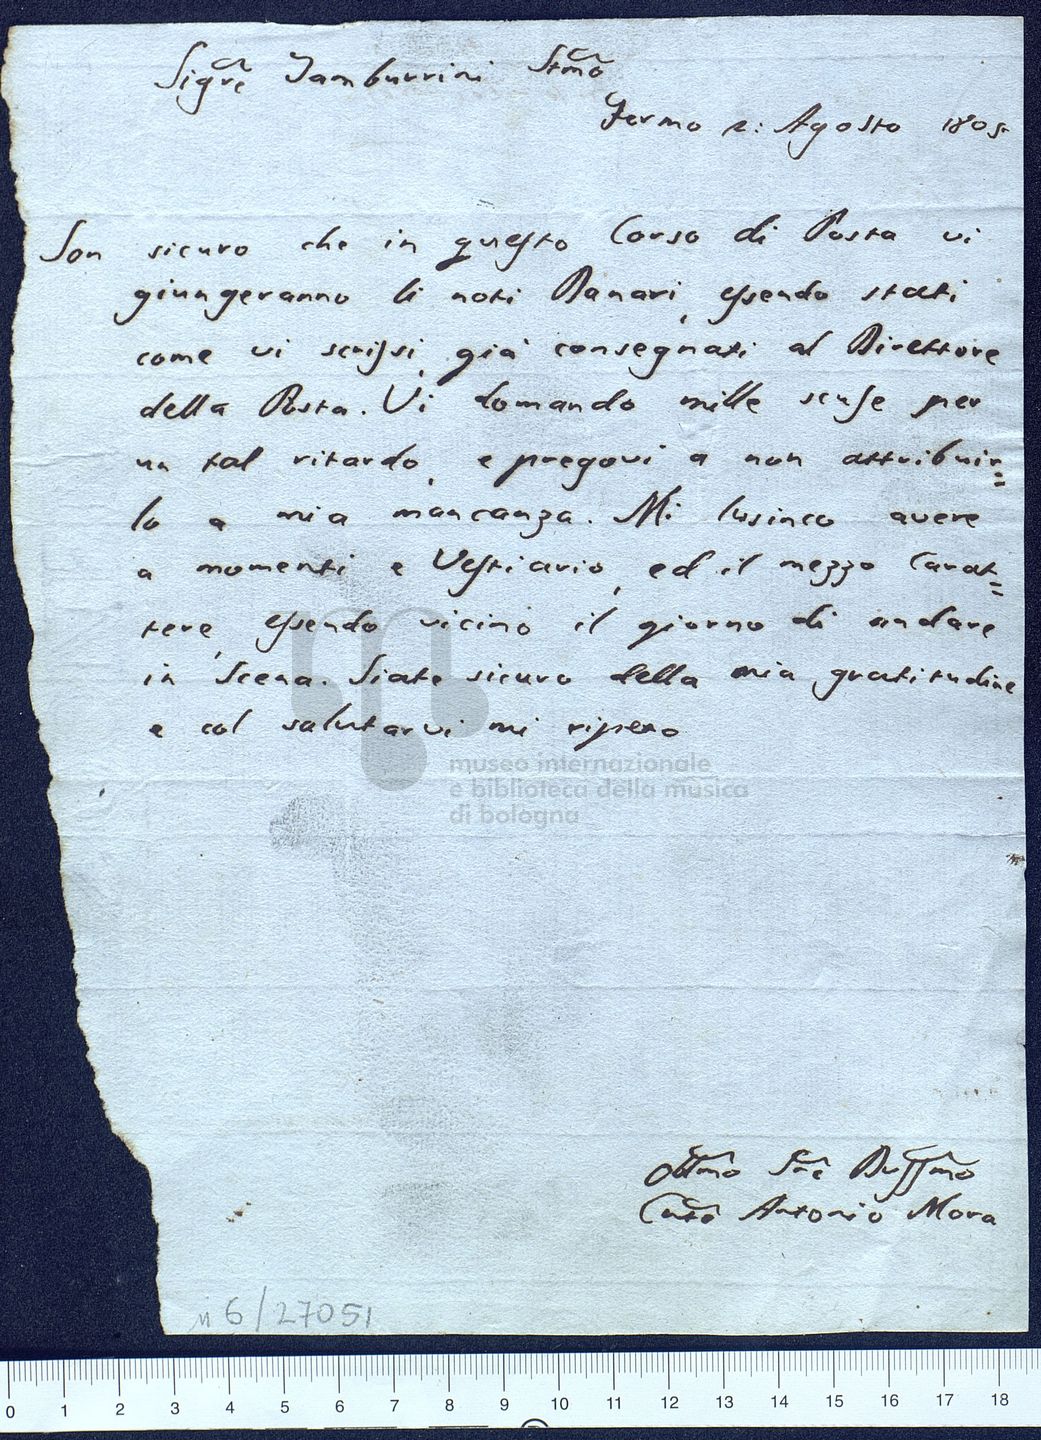 Sigre Tamburrini Stmo
Fermo 2: Agosto 1805
Son sicuro che in questo Corso di Posta vi
giungeranno li noti Danari, essendo stati
come vi scrissi, già consegnati al Direttore
della Posta. Vi domando mille scuse per
un tal ritardo, e pregovi a non attribuir=
lo a mia mancanza. Mi lusinco avere
a momenti e Vestiario, ed il mezzo Carat=
tere, essendo vicino il giorno di andare
in Scena. Siate sicuro della mia gratitudine
e col salutarvi mi ripeto
museo internazionale
e biblioteca della musica
di bologna
Antonio Mora
n 6/27051
0 1 2 3 4 5 6 7 8 9 10 11 12 13 14 15 16 17 18